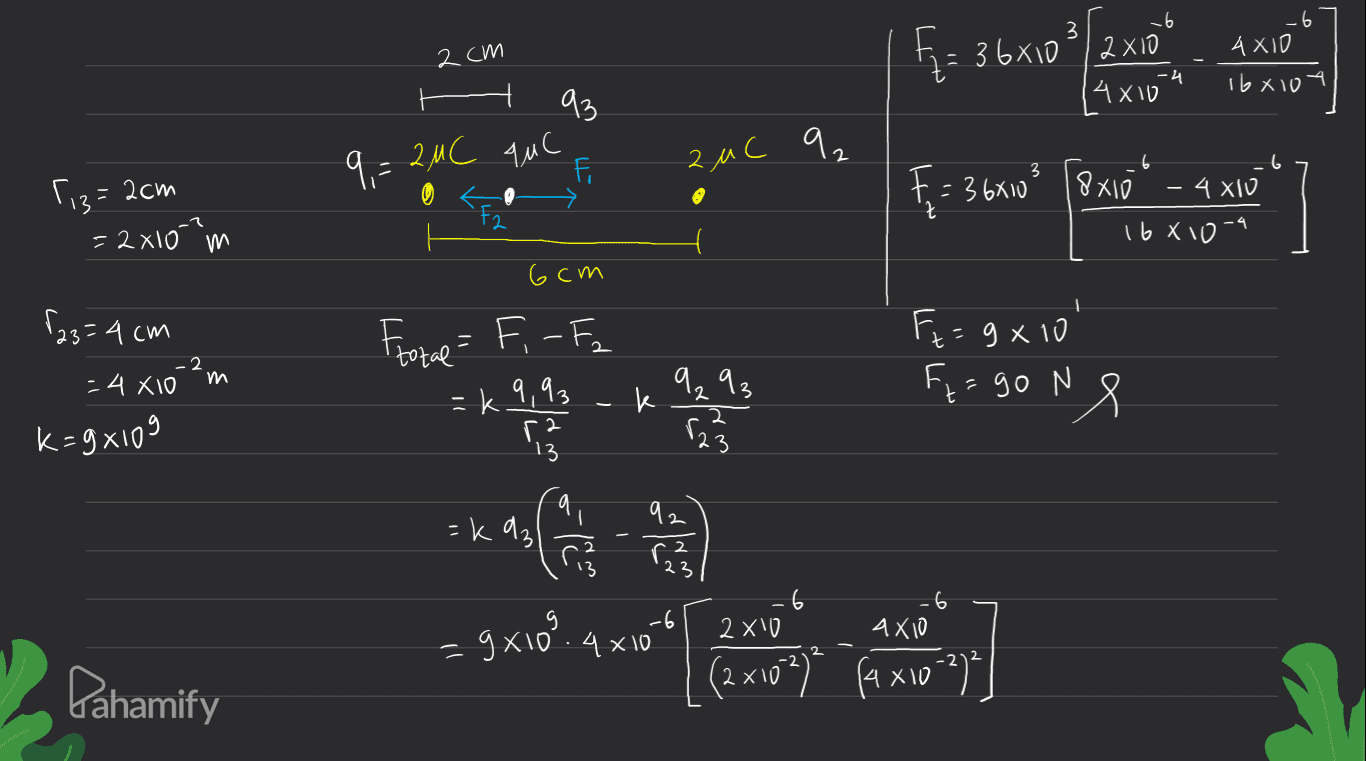 2 cm
q₃
q₁ = 2μC 4μC 2μC q₂
F₁
F₂
6 cm
r₁₃ = 2cm
= 2 x 10⁻² m
r₂₃ = 4 cm
= 4 x 10⁻² m
k = 9 x 10⁹
F_total = F₁ - F₂
= k q₁q₃/r₁₃² - k q₂q₃/r₂₃²
= k q₃ (q₁/r₁₃² - q₂/r₂₃²)
= 9 x 10⁹ . 4 x 10⁻⁶ [2 x 10⁻⁶/(2 x 10⁻²)² - 4 x 10⁻⁶/(4 x 10⁻²)²]
F_t = 36 x 10³ [2 x 10⁻⁶/4 x 10⁻⁴ - 4 x 10⁻⁶/16 x 10⁻⁴]
F_t = 36 x 10³ [8 x 10⁻⁶ - 4 x 10⁻⁶/16 x 10⁻⁴]
F_t = 9 x 10¹
F_t = 90 N
Pahamify